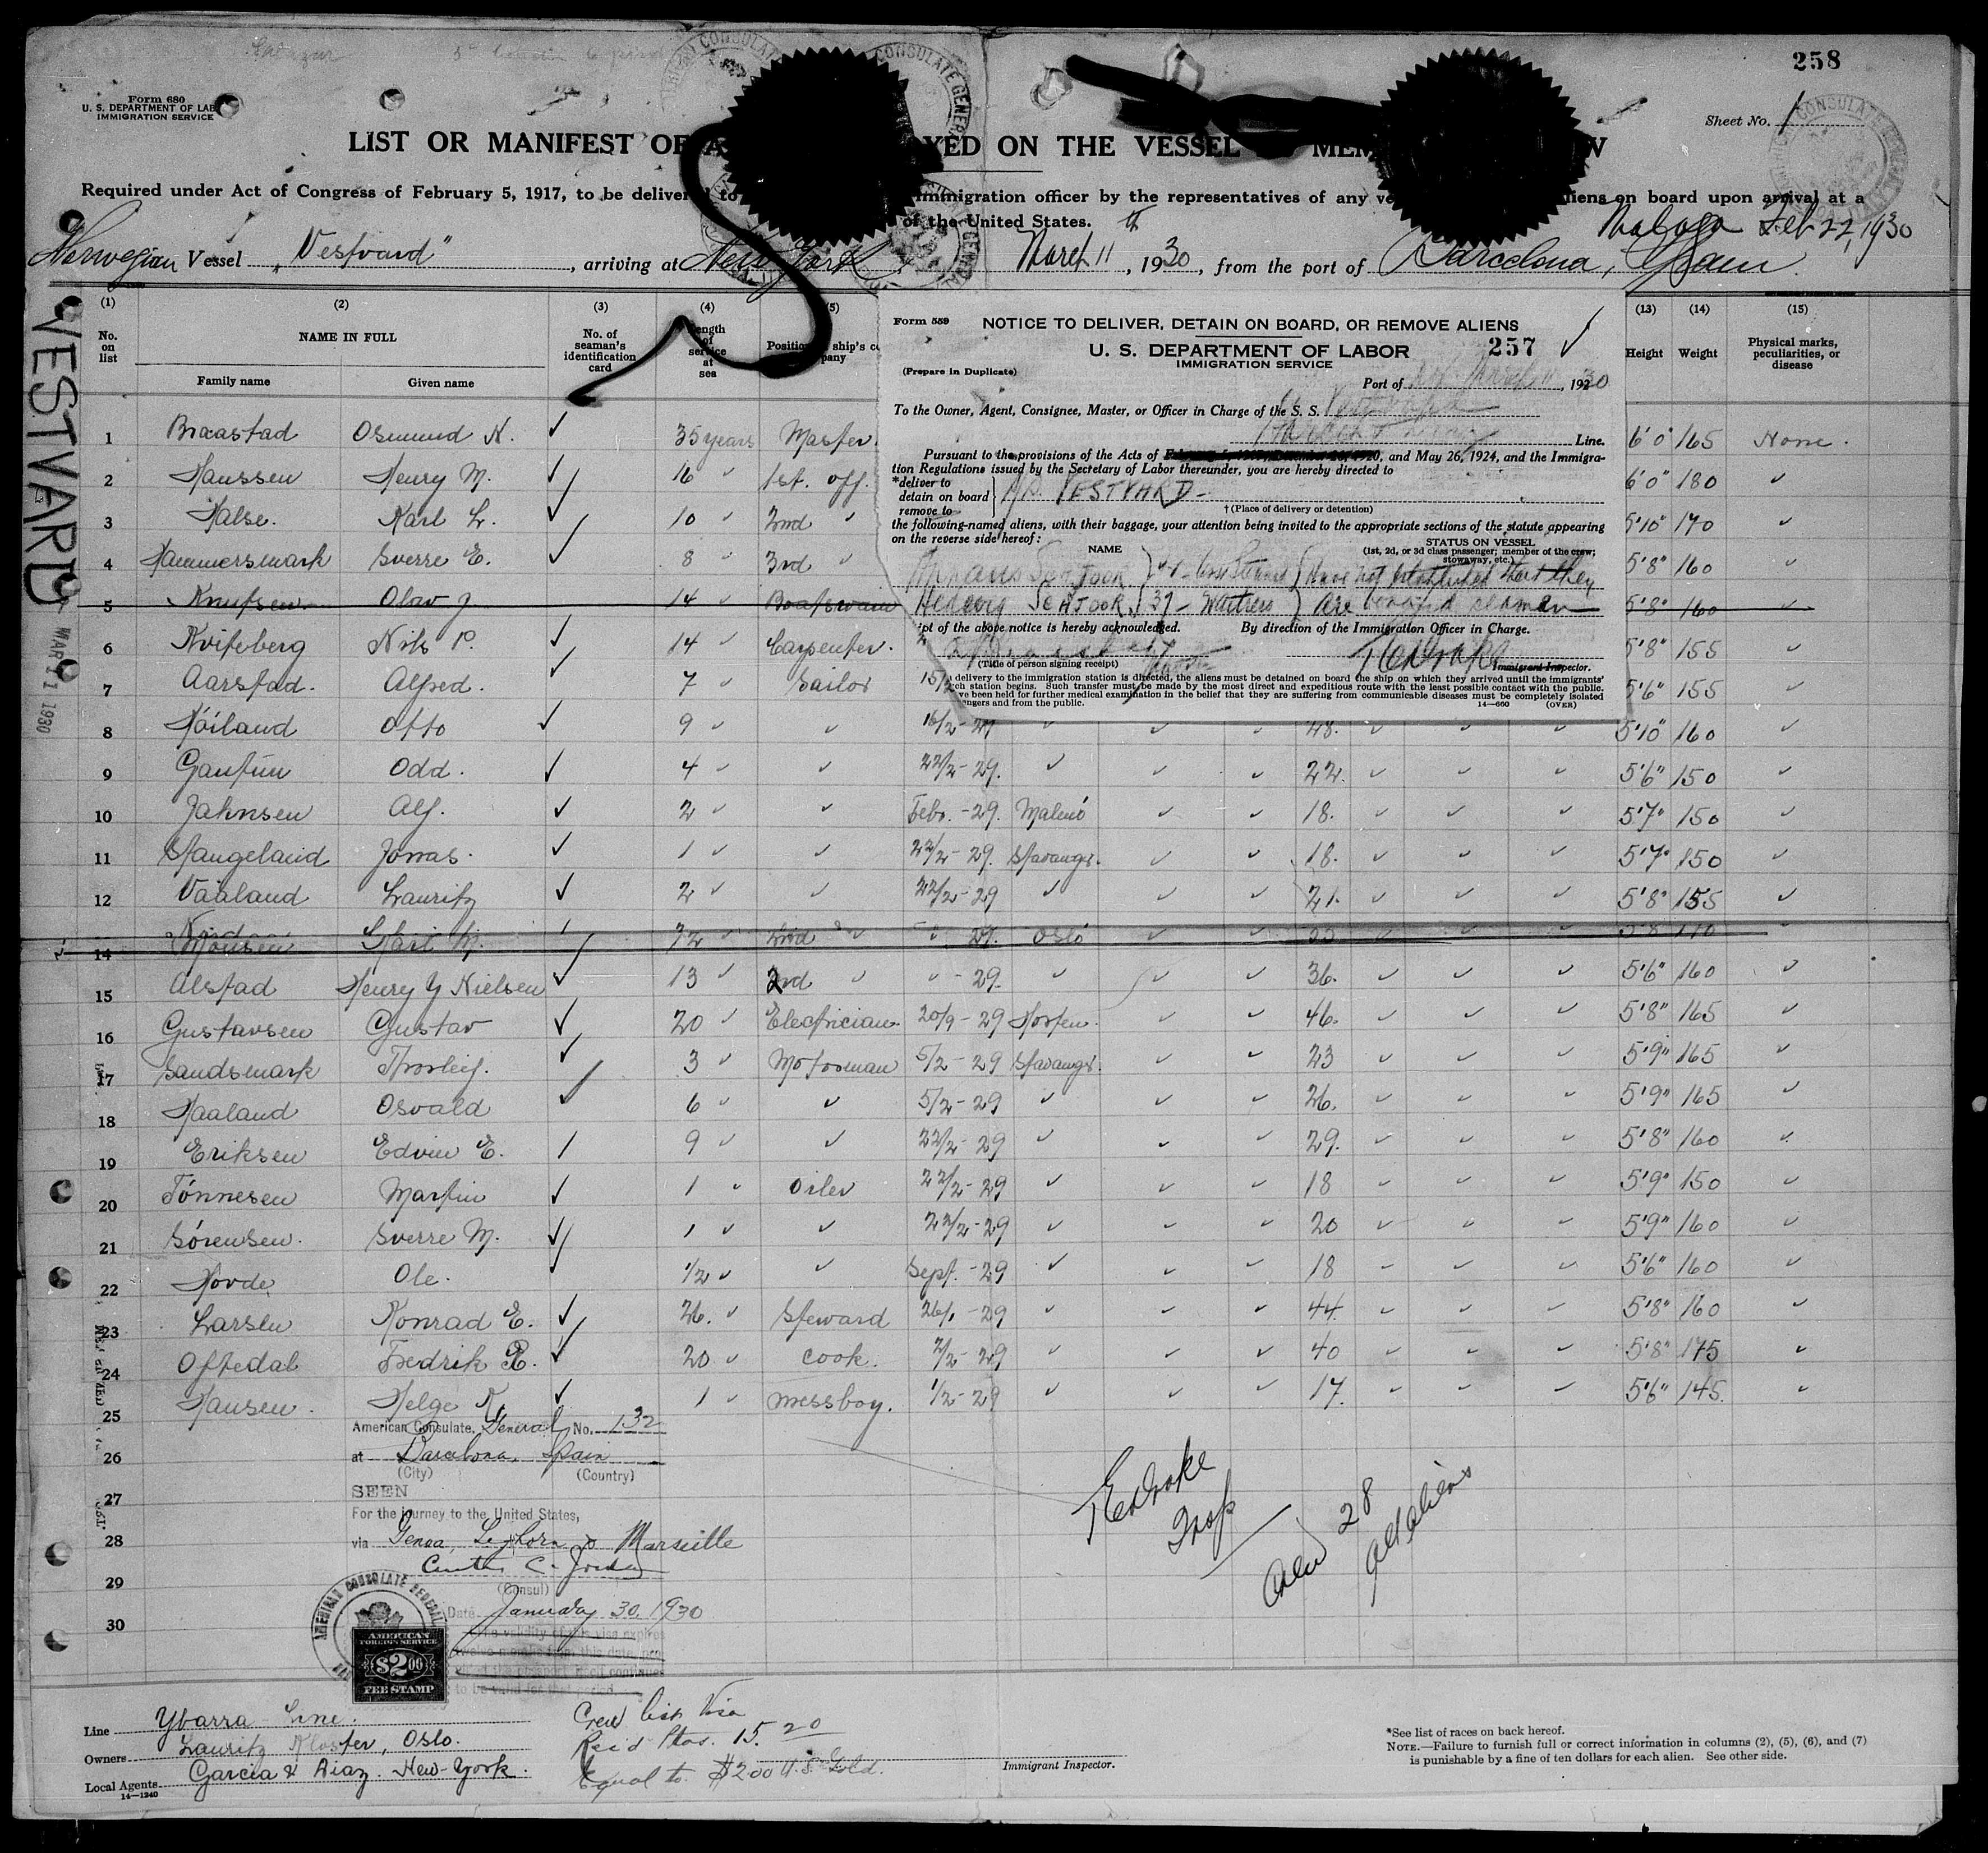 258
Form 680
U. S. DEPARTMENT OF LAB
IMMIGRATION SERVICE
Sheet No. 1
LIST OR MANIFEST OF A YED ON THE VESSEL MEN W
Required under Act of Congress of February 5, 1917, to be deliver to immigration officer by the representatives of any ve liens on board upon arrival at a
of the United States.
Malaga Feb 22, 1930
Norwegian Vessel "Vestvard", arriving at New York, March 11th, 1930, from the port of Barcelona, Spain.
VESTVARD
MAR 11 1930
(1) (2) (3) (4) (5) (13) (14) (15)
No. on list NAME IN FULL No. of seaman's identification card Length of service at sea Position ship's Height Weight Physical marks, peculiarities, or disease
Family name Given name
Form 559
NOTICE TO DELIVER, DETAIN ON BOARD, OR REMOVE ALIENS
U. S. DEPARTMENT OF LABOR 257
IMMIGRATION SERVICE
(Prepare in Duplicate)
Port of March 11, 1930
To the Owner, Agent, Consignee, Master, or Officer in Charge of the S. S. Vestvard
Line.
Pursuant to the provisions of the Acts of and May 26, 1924, and the Immigra-
tion Regulations issued by the Secretary of Labor thereunder, you are hereby directed to
*deliver to
detain on board VESTVARD
remove to
†(Place of delivery or detention)
the following-named aliens, with their baggage, your attention being invited to the appropriate sections of the statute appearing
on the reverse side hereof:
NAME
STATUS ON VESSEL
(1st, 2d, or 3d class passenger; member of the crew; stowaway, etc.)
Have not established that they
Hedwig 37 - Waitress are bona fide seamen
ipt of the above notice is hereby acknowledged. By direction of the Immigration Officer in Charge.
(Title of person signing receipt) Immigrant Inspector.
delivery to the immigration station is directed, the aliens must be detained on board the ship on which they arrived until the immigrants'
ch station begins. Such transfer must be made by the most direct and expeditious route with the least possible contact with the public.
ve been held for further medical examination in the belief that they are suffering from communicable diseases must be completely isolated
ngers and from the public. 14—660 (OVER)
1 Braastad Osmund K. ✓ 35 years Master. 6'0" 165 None.
2 Hanssen Henry M. ✓ 16 " 1st. off. 6'0" 180 "
3 Halse. Karl L. ✓ 10 " 2nd " 5'10" 170 "
4 Hammersmark Sverre E. ✓ 8 " 3rd " 5'8" 160 "
5 Knutsen Olav J. 14 " Boatswain 5'8" 160
6 Kviteberg Nils P. ✓ 14 " Carpenter. 5'8" 155 "
7 Aarstad. Alfred. ✓ 7 " Sailor 5'6" 155 "
8 Høiland Otto ✓ 9 " " 16/2-29 " " " 48. " " " 5'10" 160 "
9 Gautun Odd. ✓ 4 " " 22/2-29. " " " 22. " " " 5'6" 150 "
10 Jahnsen Alf. ✓ 2 " " Febr.-29. Malmö " " 18. " " " 5'7" 150 "
11 Stangeland Jonas. ✓ 1 " " 22/2-29. Stavanger. " " 18. " " " 5'7" 150 "
12 Vaaland Lauritz ✓ 2 " " 22/2-29 " " " 21. " " " 5'8" 155 "
14 Oslo
15 Alstad Henry Y Nielsen ✓ 13 " 2nd " " -29. " " " 36. " " " 5'6" 160 "
16 Gustavsen Gustav ✓ 20 " Electrician. 20/9-29 Horten. " " 46. " " " 5'8" 165 "
17 Sandsmark Thorleif. ✓ 3 " Motorman 5/2-29 Stavanger. " " 23 " " " 5'9" 165 "
18 Haaland Osvald ✓ 6 " " 5/2-29 " " " 26. " " " 5'9" 165 "
19 Eriksen Edvin E. 9 " " 22/2-29 " " " 29. " " " 5'8" 160 "
20 Tønnesen Martin ✓ 1 " Oiler 22/2-29 " " " 18 " " " 5'9" 150 "
21 Sørensen. Sverre M. ✓ 1 " " 22/2-29 " " " 20 " " " 5'9" 160 "
22 Hovde Ole. ✓ 1/2 " " Sept.-29 " " " 18 " " " 5'6" 160 "
23 Larsen Konrad E. ✓ 26. " Steward 26/1-29 " " " 44. " " " 5'8" 160 "
24 Oftedal Fredrik R. ✓ 20 " Cook. 2/2-29 " " " 40 " " " 5'8" 175 "
25 Hansen. Helge K. ✓ 1 " messboy. 1/2-29 " " " 17. " " " 5'6" 145. "
26
27
28
29
30
American Consulate General No. 132
at Barcelona, Spain
(City) (Country)
SEEN
For the journey to the United States,
via Genoa, Leghorn & Marseille
Curtis C. Jordan
(Consul)
Date January 30, 1930
AMERICAN CONSULATE GENERAL
AMERICAN
FOREIGN SERVICE
$2.00
FEE STAMP
TEDrake
Insp
Crew 28
all aliens
Line Ybarra Line.
Owners Lauritz Kloster, Oslo.
Local Agents Garcia & Diaz. New-York.
14—1240
Crew list Visa
Rec'd Ptas. 15.20
Equal to $2.00 U.S. Gold.
Immigrant Inspector.
*See list of races on back hereof.
NOTE.—Failure to furnish full or correct information in columns (2), (5), (6), and (7)
is punishable by a fine of ten dollars for each alien. See other side.